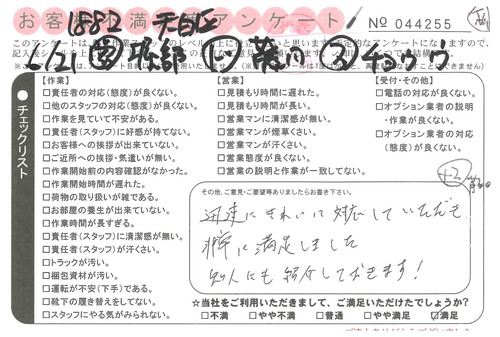 お客様満足アンケート! No 044255
1882 天白区
6/21
このアンケートは
【作業】
□責任者の対応(態度)が良くない。
□他のスタッフの対応(態度)が良くない。
□作業を見ていて不安がある。
□責任者(スタッフ)に好感が持てない。
□お客様への挨拶が出来ていない。
□ご近所への挨拶・気遣いが無い。
□作業開始前の内容確認がなかった。
□作業開始時間が遅れた。
□荷物の取り扱いが雑である。
□お部屋の養生が出来ていない。
□作業時間が長すぎる。
□責任者(スタッフ)に清潔感が無い。
□責任者(スタッフ)が汗くさい。
□トラックが汚い。
□梱包資材が汚い。
□運転が不安(下手)である。
□靴下の履き替えをしてない。
□スタッフにやる気がみられない。
【営業】
□見積もり時間に遅れた。
□見積もり時間が長い。
□営業マンに清潔感が無い。
□営業マンが煙草くさい。
□営業マンが汗くさい。
□営業態度が良くない。
□営業の説明と作業が一致してない。
【受付・その他】
□電話の対応が良くない。
□オプション業者の説明
・作業が良くない。
□オプション業者の対応
(態度)が良くない。
チェックリスト
+2
その他、ご意見・ご要望等ありましたらお書き下さい。
迅速にきれいに対応していただき
非常に満足しました
知人にも紹介しておきます!
☆当社をご利用いただきまして、ご満足いただけたでしょうか?
□不満 □やや不満 □普通 □やや満足 ☑満足